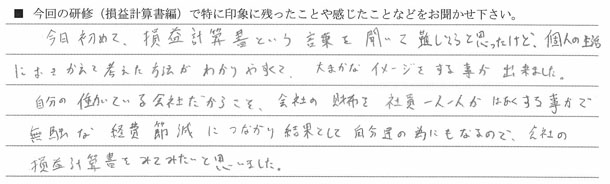 ■ 今回の研修（損益計算書編）で特に印象に残ったことや感じたことなどをお聞かせ下さい。
今日初めて、損益計算書という言葉を聞いて難しそうと思ったけど、個人の生活
におきかえて考えた方法がわかりやすくて、大まかなイメージをする事が出来ました。
自分の働いている会社だからこそ、会社の財布を社員一人一人がはあくする事がで
無駄な経費節減につながり結果として自分達の為にもなるので、会社の
損益計算書をみてみたいと思いました。